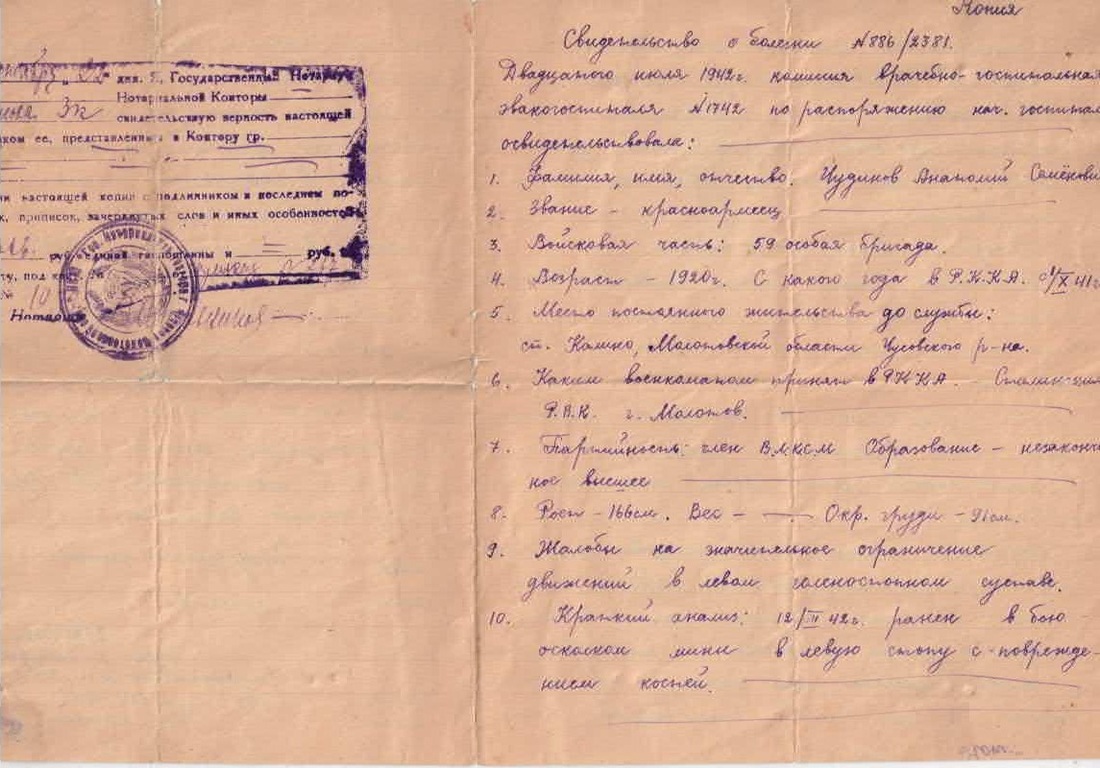 22 дня. Я, Государственный Нотариус
Нотариальной Конторы
Зк свидетельствую верность настоящей
ком ее, представленный в Контору гр.
настоящей копии с подлинником и последнем по-
к, приписок, зачеркнутых слов и иных особенностей
руб. единой госпошлины и руб.
ту, под
№ 10
Нотариус
Копия
Свидетельство о болезни №886/2381.
Двадцатого июля 1942г. комиссия врачебно-госпитальная
эвакогоспиталя №1742 по распоряжению нач. госпитал
освидетельствовала:
1. Фамилия, имя, отчество. Чудинов Анатолий Семёнови
2. Звание - красноармеец
3. Войсковая часть: 59 особая бригада.
4. Возраст - 1920г. С какого года в Р.К.К.А. с 1/X 41г
5. Место постоянного жительства до службы:
ст. Калино, Молотовской области Чусовского р-на.
6. Каким военкоматом принят в РККА. - Сталинским
Р.В.К. г. Молотов.
7. Партийность: член В.Л.К.С.М Образование - незаконч
ное высшее
8. Рост - 166см. Вес - — Окр. груди - 91см.
9. Жалобы на значительное ограничение
движений в левом голеностопном суставе.
10. Краткий анализ: 12/II 42г. ранен в бою
осколком мины в левую стопу с поврежде-
нием костей.